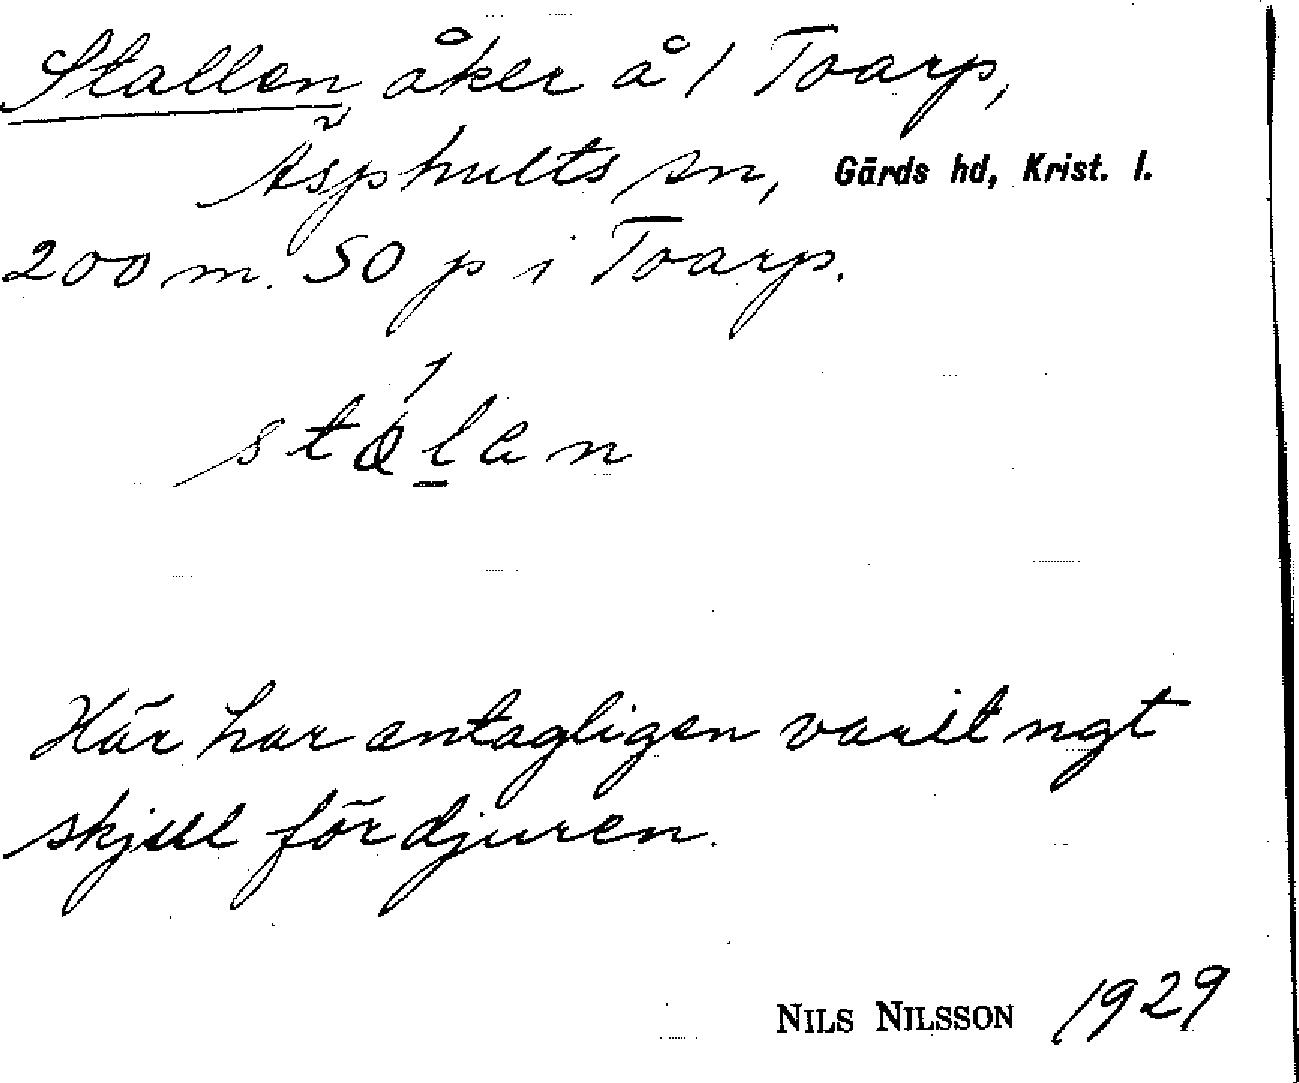 Stallen åker å 1 Toarp,
Äsphults sn, Gärds hd, Krist. l.
200 m. SO p i Toarp.
stálan
Här har antagligen varit ngt
skjul för djuren.
NILS NILSSON 1929